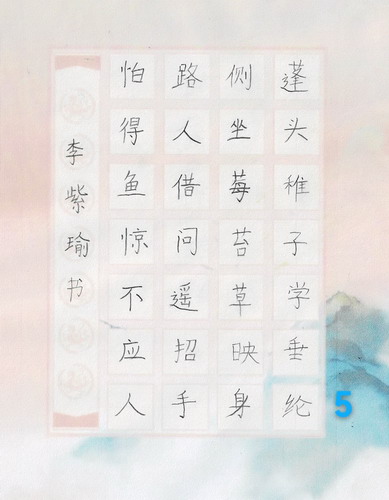 蓬头稚子学垂纶
侧坐莓苔草映身
路人借问遥招手
怕得鱼惊不应人
李紫瑜书
5